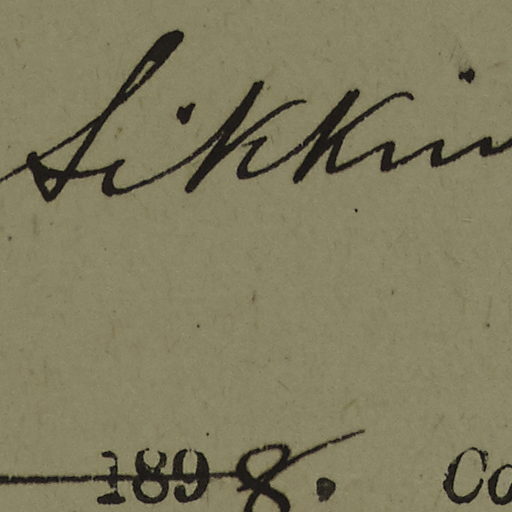 Sikkim
1898. Co